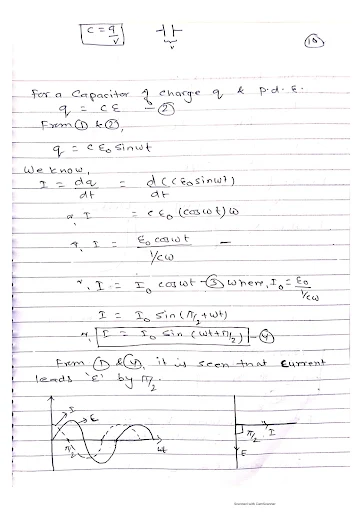 C = q/v
v
For a Capacitor of charge q & p.d. E.
q = CE — ②
From ① & ②,
q = C E₀ Sinωt
We know,
I = dq/dt = d(CE₀sinωt)/dt
or, I = C E₀ (cosωt) ω
or, I = E₀ cosωt / 1/cω —
or, I = I₀ cosωt — ③ where, I₀ = E₀ / 1/cω
I = I₀ sin(π/2 + ωt)
or, I = I₀ Sin (ωt + π/2) — ④
From ① & ④, it is seen that current
leads 'E' by π/2.
I
E
π/2
ωt
π/2
I
E
Scanned with CamScanner